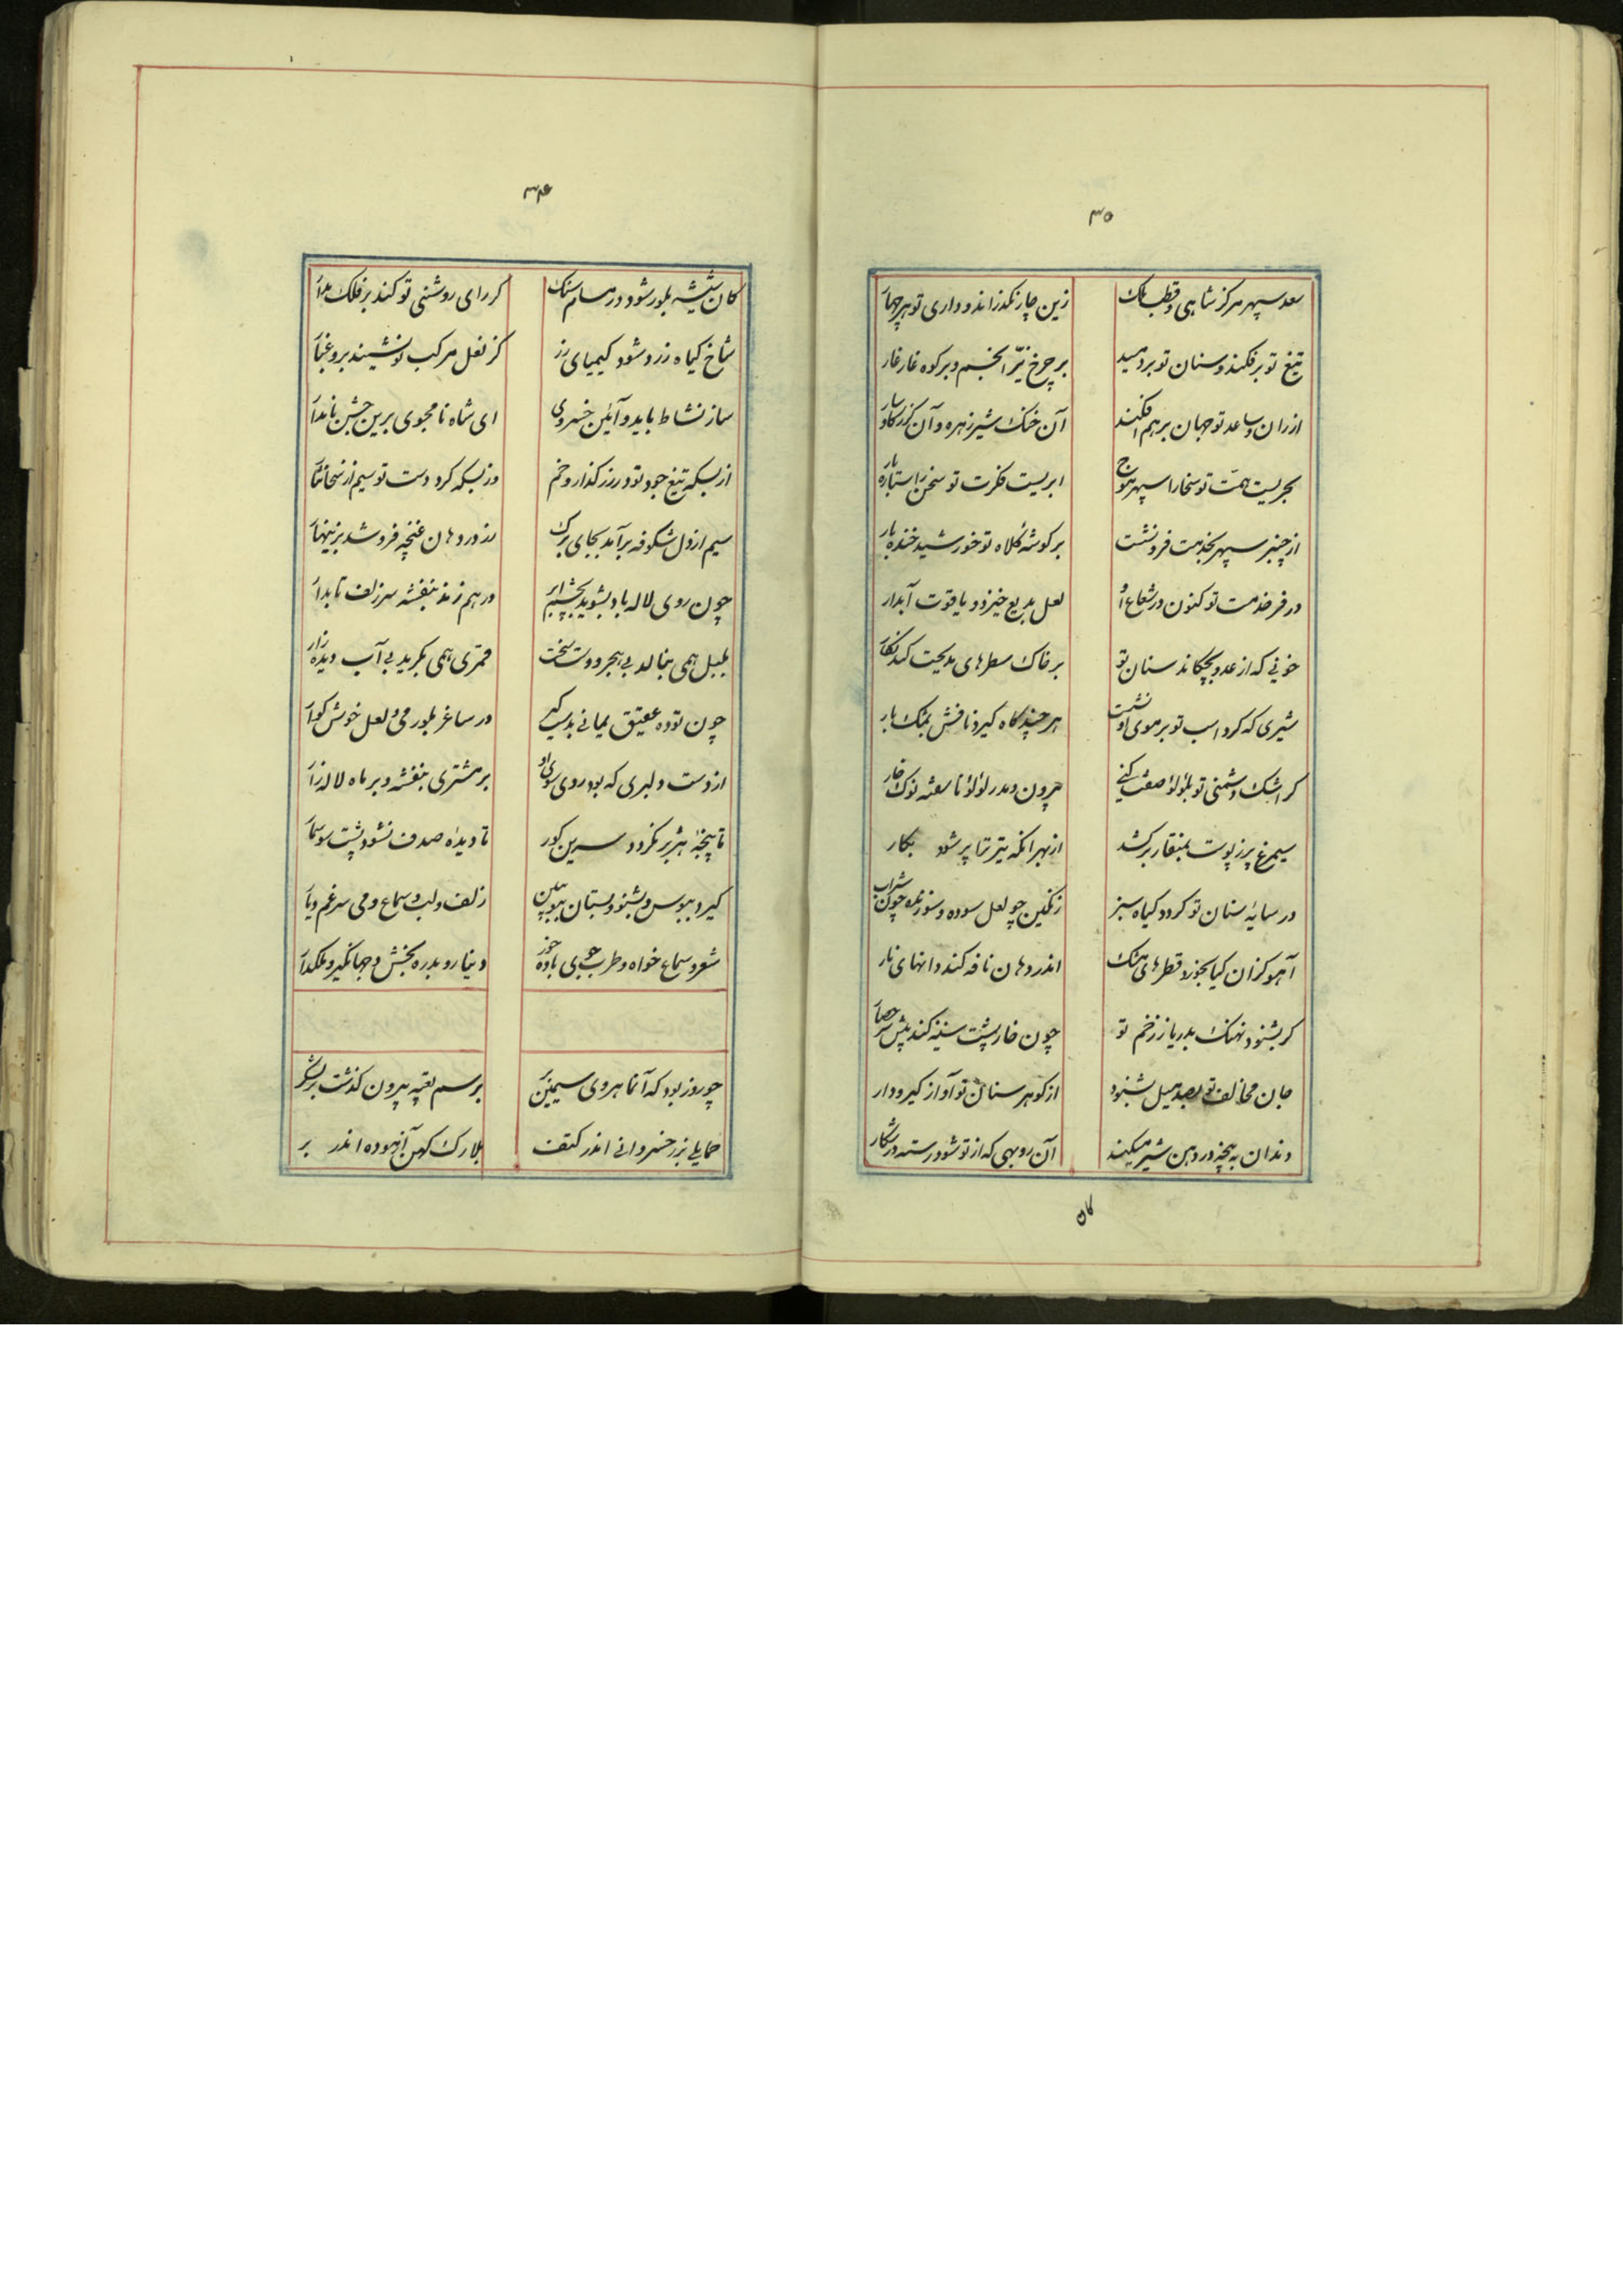 ۳۵
سعد سپهر مرکز شاهی و قطب ملک زین چار نکذراند و داری تو هر چهار
تیغ تو برفکند و سنان تو بردمید بر چرخ نیّر انجم و بر کوه غار غار
از ران و ساعد تو جهان برهم افکند آن خنک شیر زهره و آن کرز کاو سار
بحریست همّت تو سخا را سپهر موج ابریست فکرت تو سخن را ستاره بار
از چنبر سپهر بخدمت فرو نشست بر کوشه کلاه تو خورشید خنده بار
در فر خدمت تو کنون در شعاع او لعل بدیع خیزد و یاقوت آبدار
خونی که از عدو بچکاند سنان تو بر خاک سطرهای مدیحت کند نکار
شیری که کرد اسب تو بر موی او نشست هر چند کاه کیرد نافش بمشک بار
کر اشک دشمنی تو بلؤلؤ صفت کنی بیرون دمد ز لؤلؤ ناسفته نوک خار
سیمرغ پر ز پوست بمنقار برکشد از بهر آنکه تیر ترا پر شود بکار
در سایۀ سنان تو کردد کیاه سبز رنکین چو لعل سوده و سوزنده چون شراب
آهو کزان کیا بخورد قطرهای مشک اندر دهان نافه کند دانهای نار
کر بشنود نهنک بدریا ز زخم تو چون خارپشت سینه کند پیش سر حصار
جان مخالف تو بصد میل بشنود از کوهر سنان تو آواز کیر و دار
دندان به پنجه در دهن شیر میکند آن روبهی که از تو شود رسته در شکار
۳۴
کان شیشه بلور شود در مسام سنک کر رای روشنی تو کند بر فلک مدار
شاخ کیاه زرد شود کیمیای زر کز نعل مرکب تو نشیند برو غبار
ساز نشاط باید و آیین خسروی ای شاه نامجوی برین جشن نامدار
از بسکه تیغ جود تو در رزکذار زخم وز بسکه کرد دست تو سیم از سخا نثار
سیم از دل شکوفه برآمد بجای برک زر در دهان غنچه فرو شد بزینهار
چون روی لاله باد بشوید بچشم ابر درهم زند بنفشه سر زلف تابدار
بلبل همی بنالد بی هجر دوست سخت قمری همی بکرید بی آب دیده زار
چون توده عقیق یمانی بدست کیر در ساغر بلور می لعل خوش کوار
از دست دلبری که بود روی و موی او بر مشتری بنفشه و بر ماه لاله زار
تا پنجۀ هژبر نکردد سرین کور تا دیدۀ صدف نشود پشت سوسمار
کیر و ببوس و بشنو و بستان ببو ببین زلف و لب و سماع و می سرغم و یار
شعر و سماع خواه و طرب جوی باده خور دینار و بدره بخش و جهانکیر و ملکدار
چو روز بود که آن ماهروی سیمین بر برسم تعبیه بیرون کذشت بر لشکر
حمایلی بزر خسروانی اندر کتف بلارک کهن آزموده اندر بر